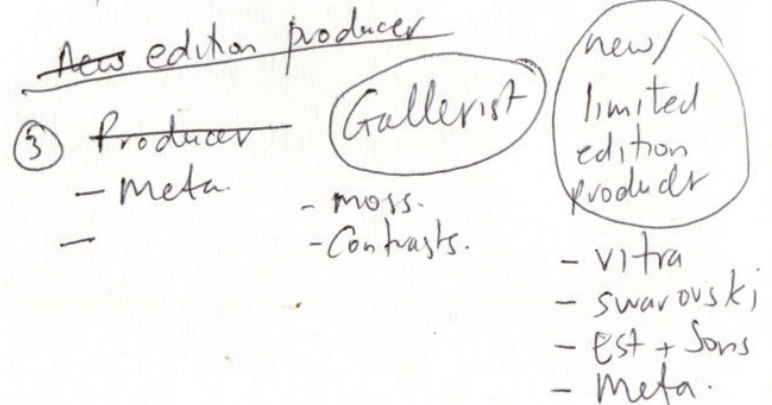 New edition producer
③ Producer
- Meta.
-
Gallerist
- Moss.
- Contrasts.
new/
limited
edition
producer
- vitra
- swarovski
- Est + Sons
- Meta.